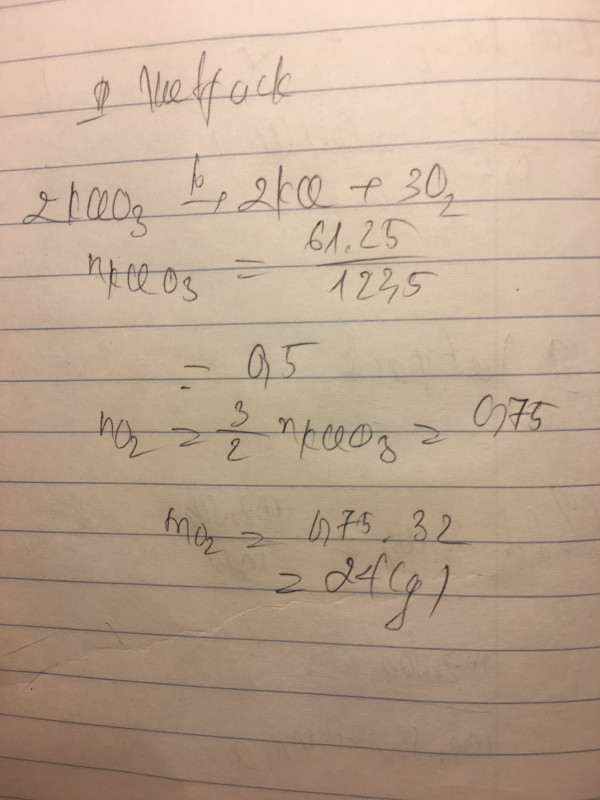 2KClO3 to→ 2KCl + 3O2
nKClO3 = 61.25 / 122,5
= 0,5
nO2 = 3/2 nKClO3 = 0,75
mO2 = 0,75 . 32
= 24 (g)